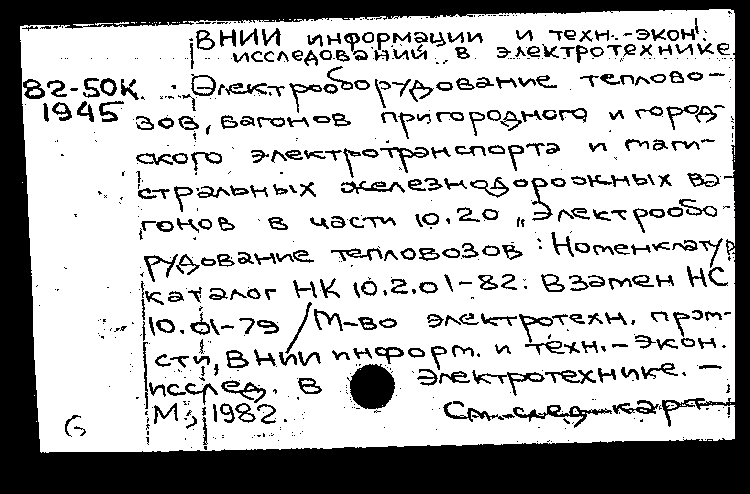 ВНИИ информации и техн.-экон.
исследований в электротехнике.
82-50К
1945
Электрооборудование теплово-
зов, вагонов пригородного и город-
ского электротранспорта и маги-
стральных железнодорожных ва-
гонов в части 10.20 „Электрообо-
рудование тепловозов: Номенклатур
каталог НК 10.2.01-82: Взамен НС
10.01-79 / М-во электротехн. пром-
сти, ВНИИ информ. и техн.-экон.
исслед. в электротехнике. —
М., 1982. См. след. карт